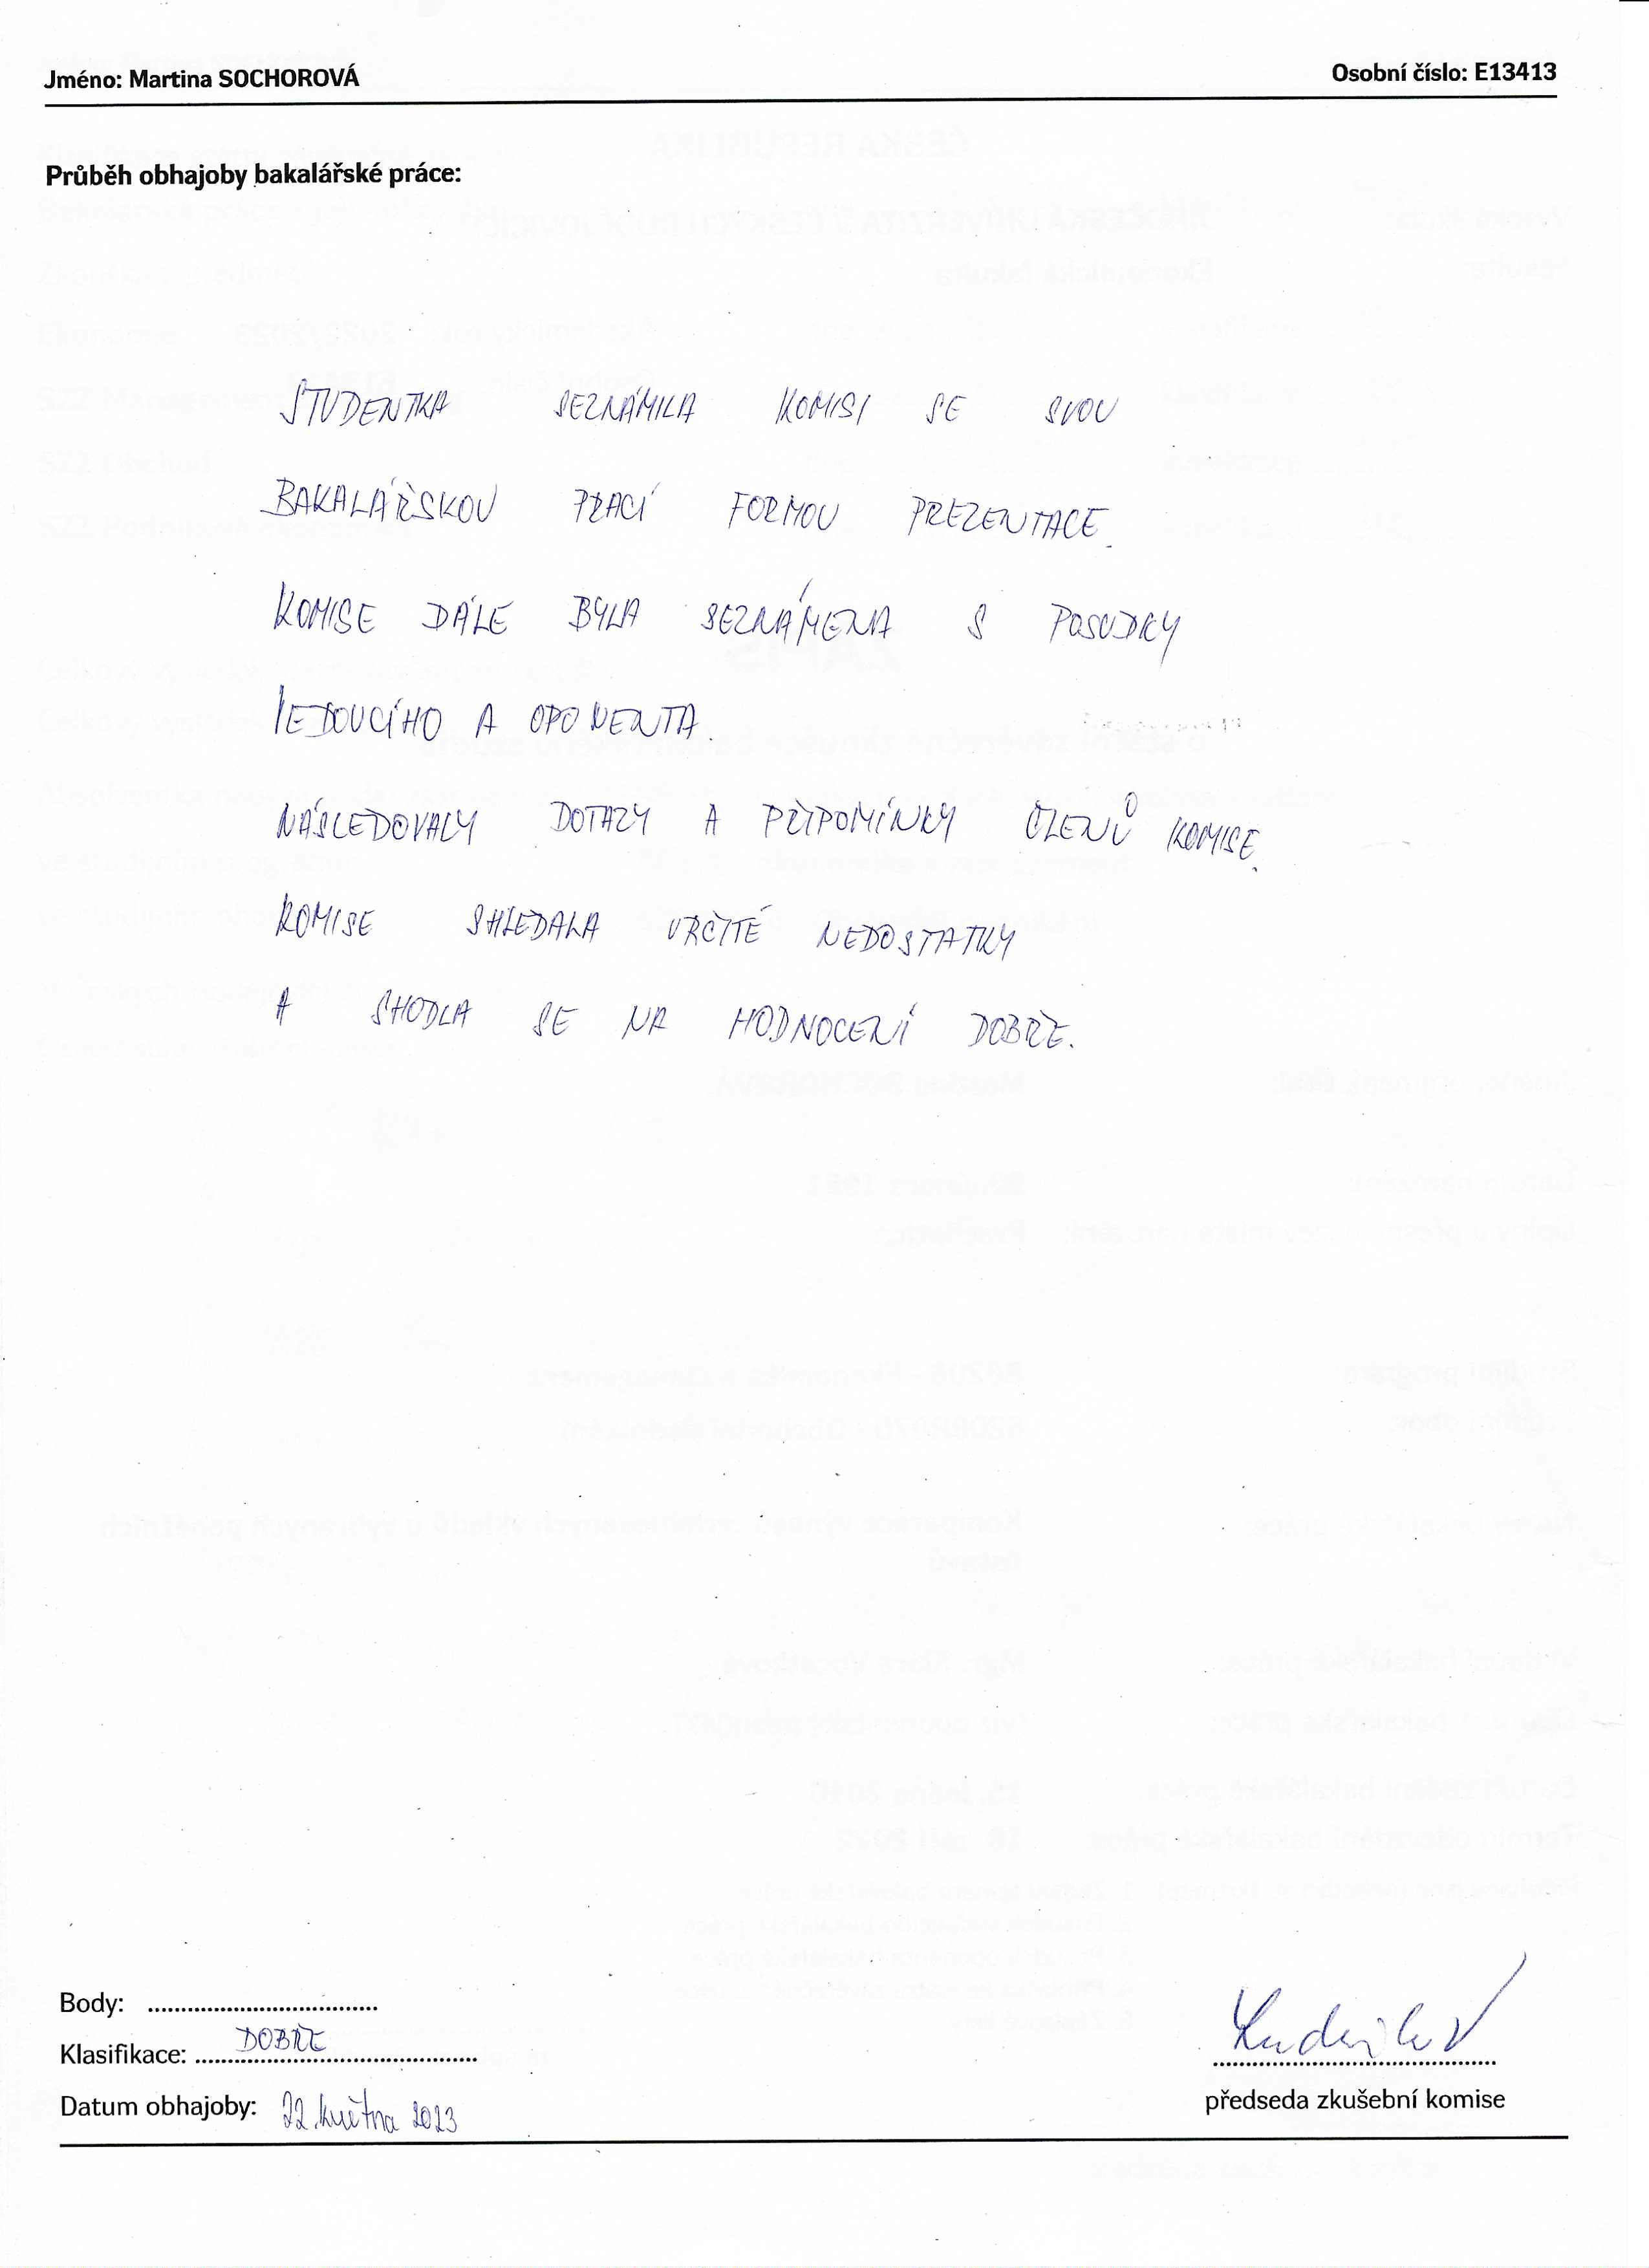 Jméno: Martina SOCHOROVÁ Osobní číslo: E13413
Průběh obhajoby bakalářské práce:
STUDENTKA SEZNÁMILA KOMISI SE SVOU
BAKALÁŘSKOU PRACÍ FORMOU PREZENTACE.
KOMISE DÁLE BYLA SEZNÁMENA S POSUDKY
VEDOUCÍHO A OPONENTA.
NÁSLEDOVALY DOTAZY A PŘIPOMÍNKY ČLENŮ KOMISE.
KOMISE SHLEDALA URČITÉ NEDOSTATKY
A SHODLA SE NA HODNOCENÍ DOBŘE.
Body: ..................................
Klasifikace: DOBŘE
Datum obhajoby: 22. května 2023
předseda zkušební komise